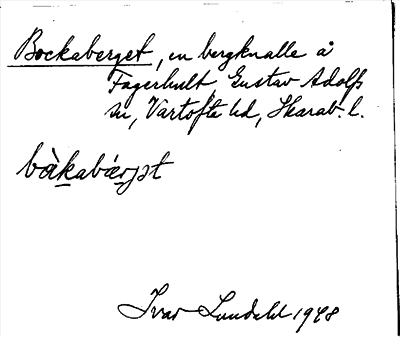 Bockaberget, en bergknalle å
Fagerhult, Gustav Adolfs
sn, Vartofta hd, Skarab. l.
bàkabárjət
Ivar Lundahl 1948